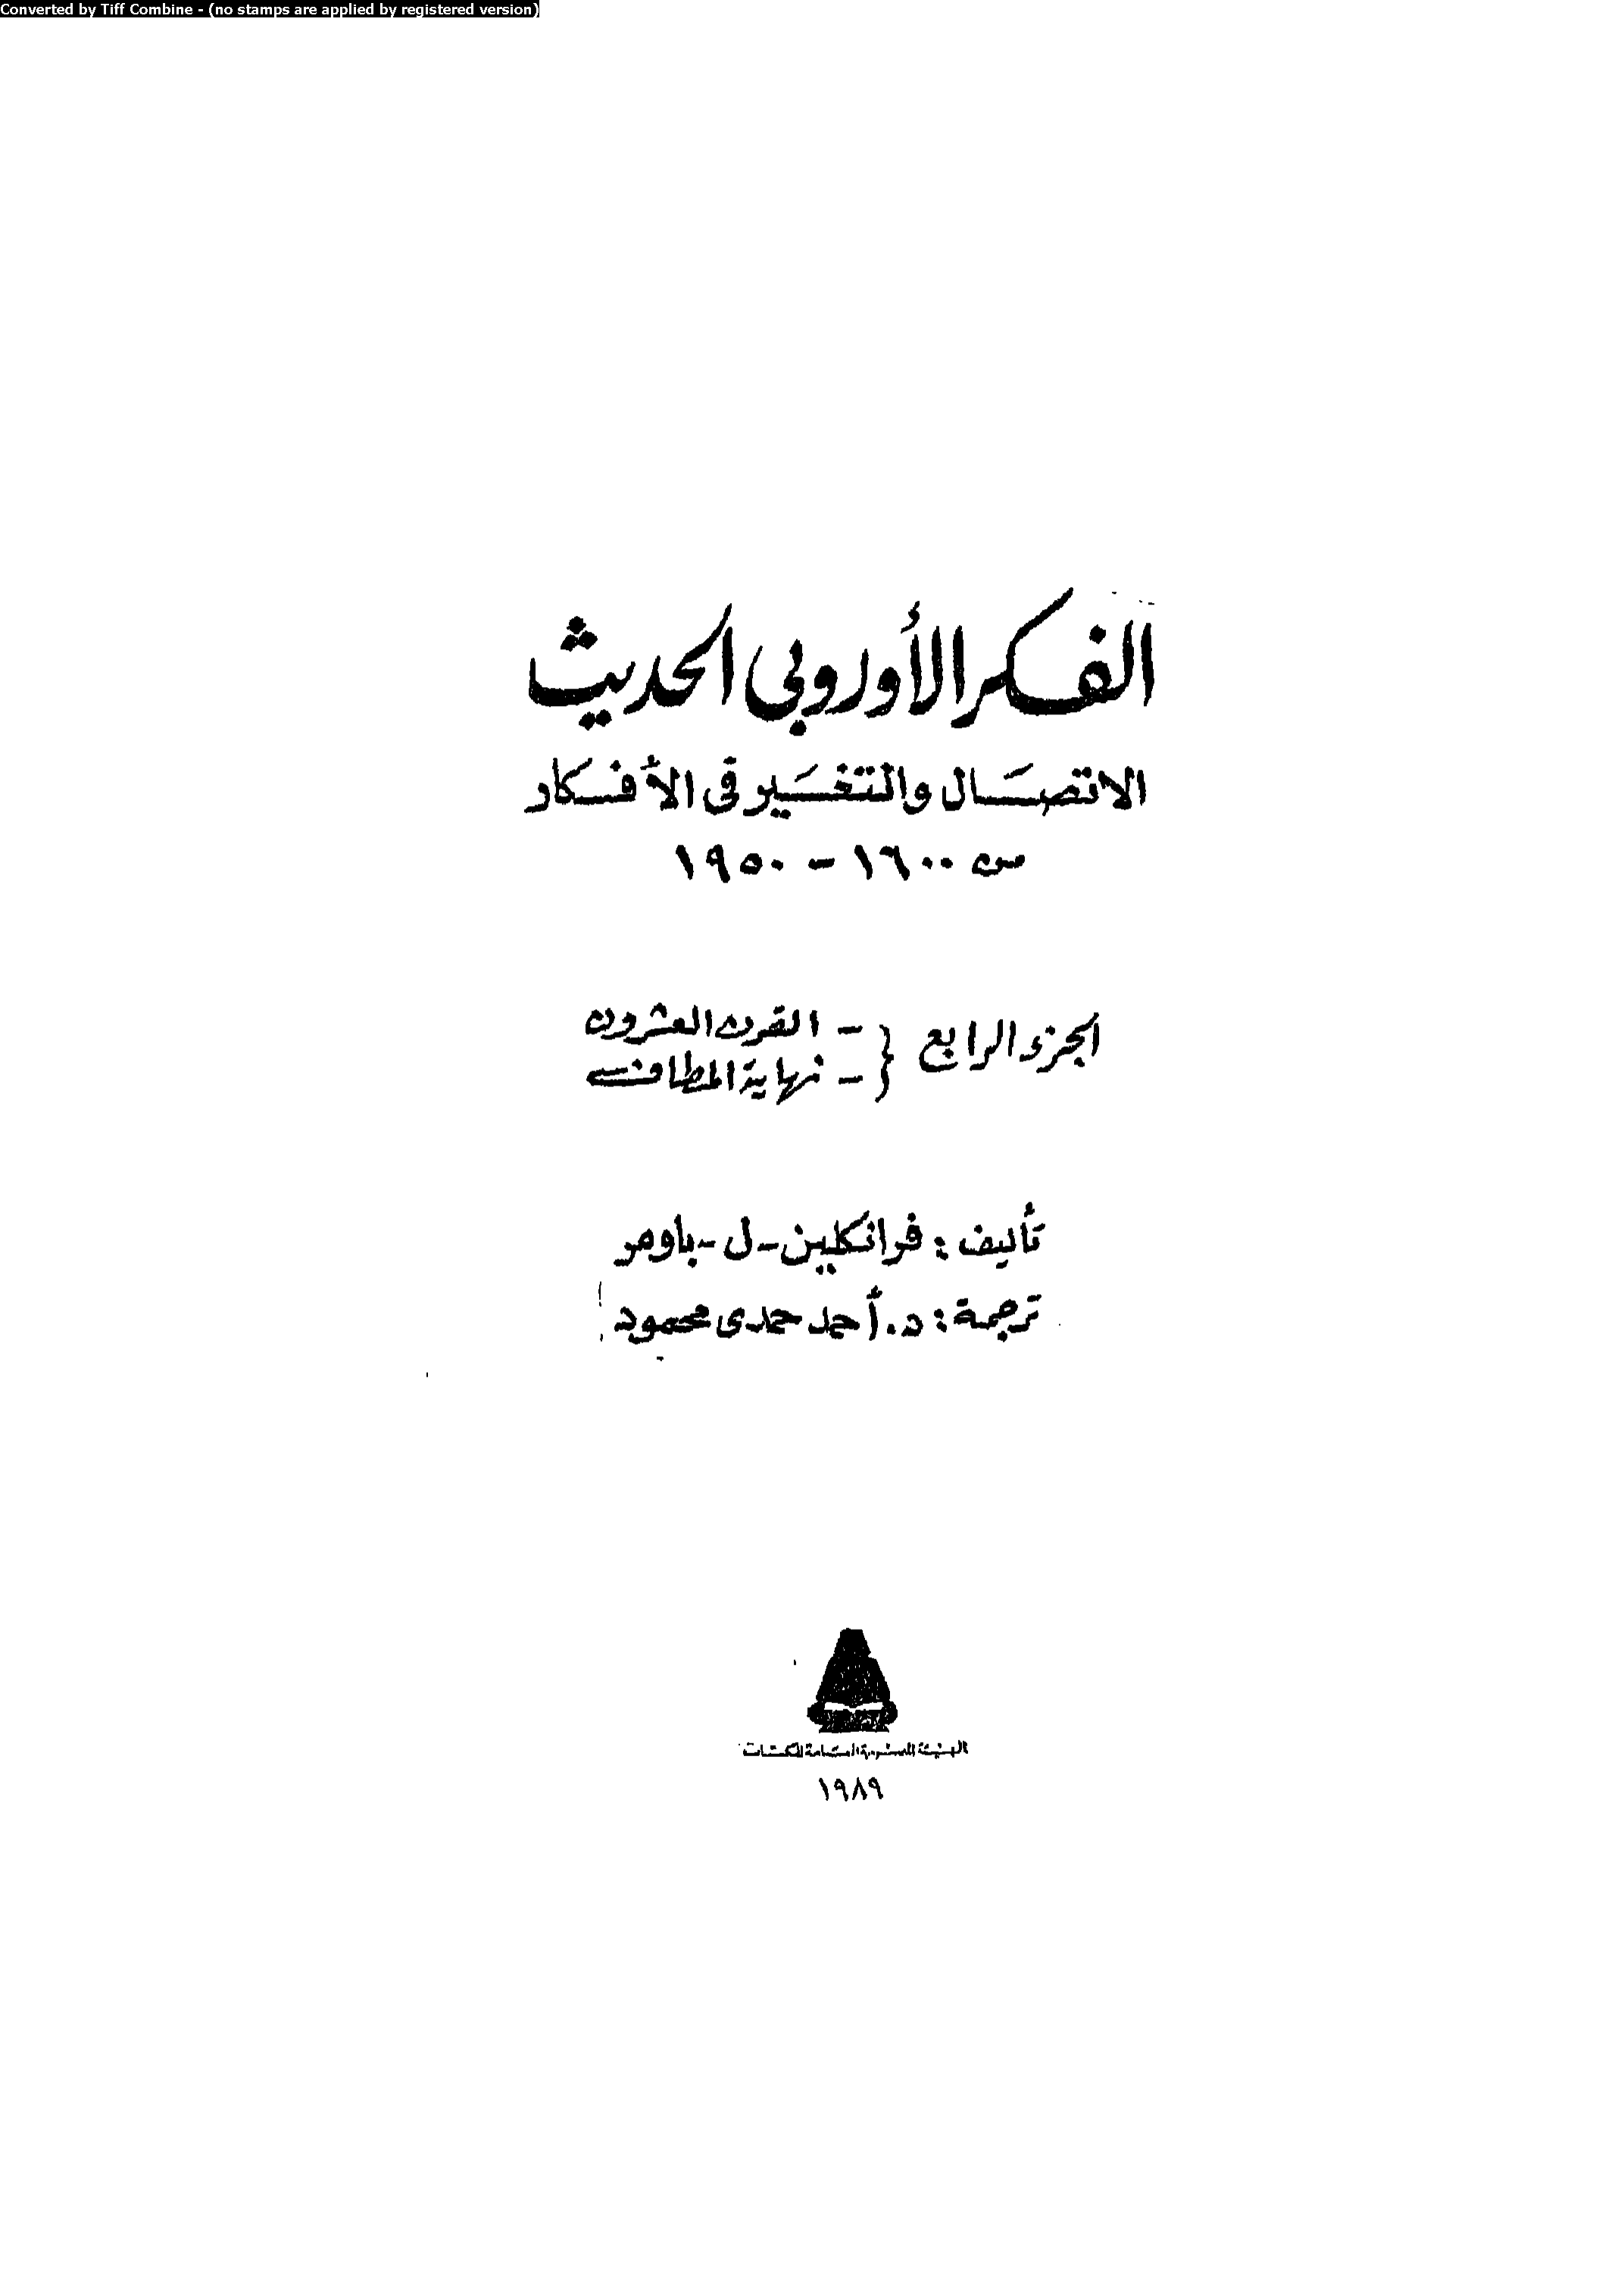 Converted by Tiff Combine - (no stamps are applied by registered version)
الفكر الأوروبى الحديث
الاتصال والتغير فى الأفكار
من ١٦٠٠ - ١٩٥٠
الجزء الرابع { - القرن العشرون
- نهاية المطاف
تأليف : فرانكلين - ل - باومر
ترجمة : د. أحمد حمدى محمود
الهيئة المصرية العامة للكتاب
١٩٨٩